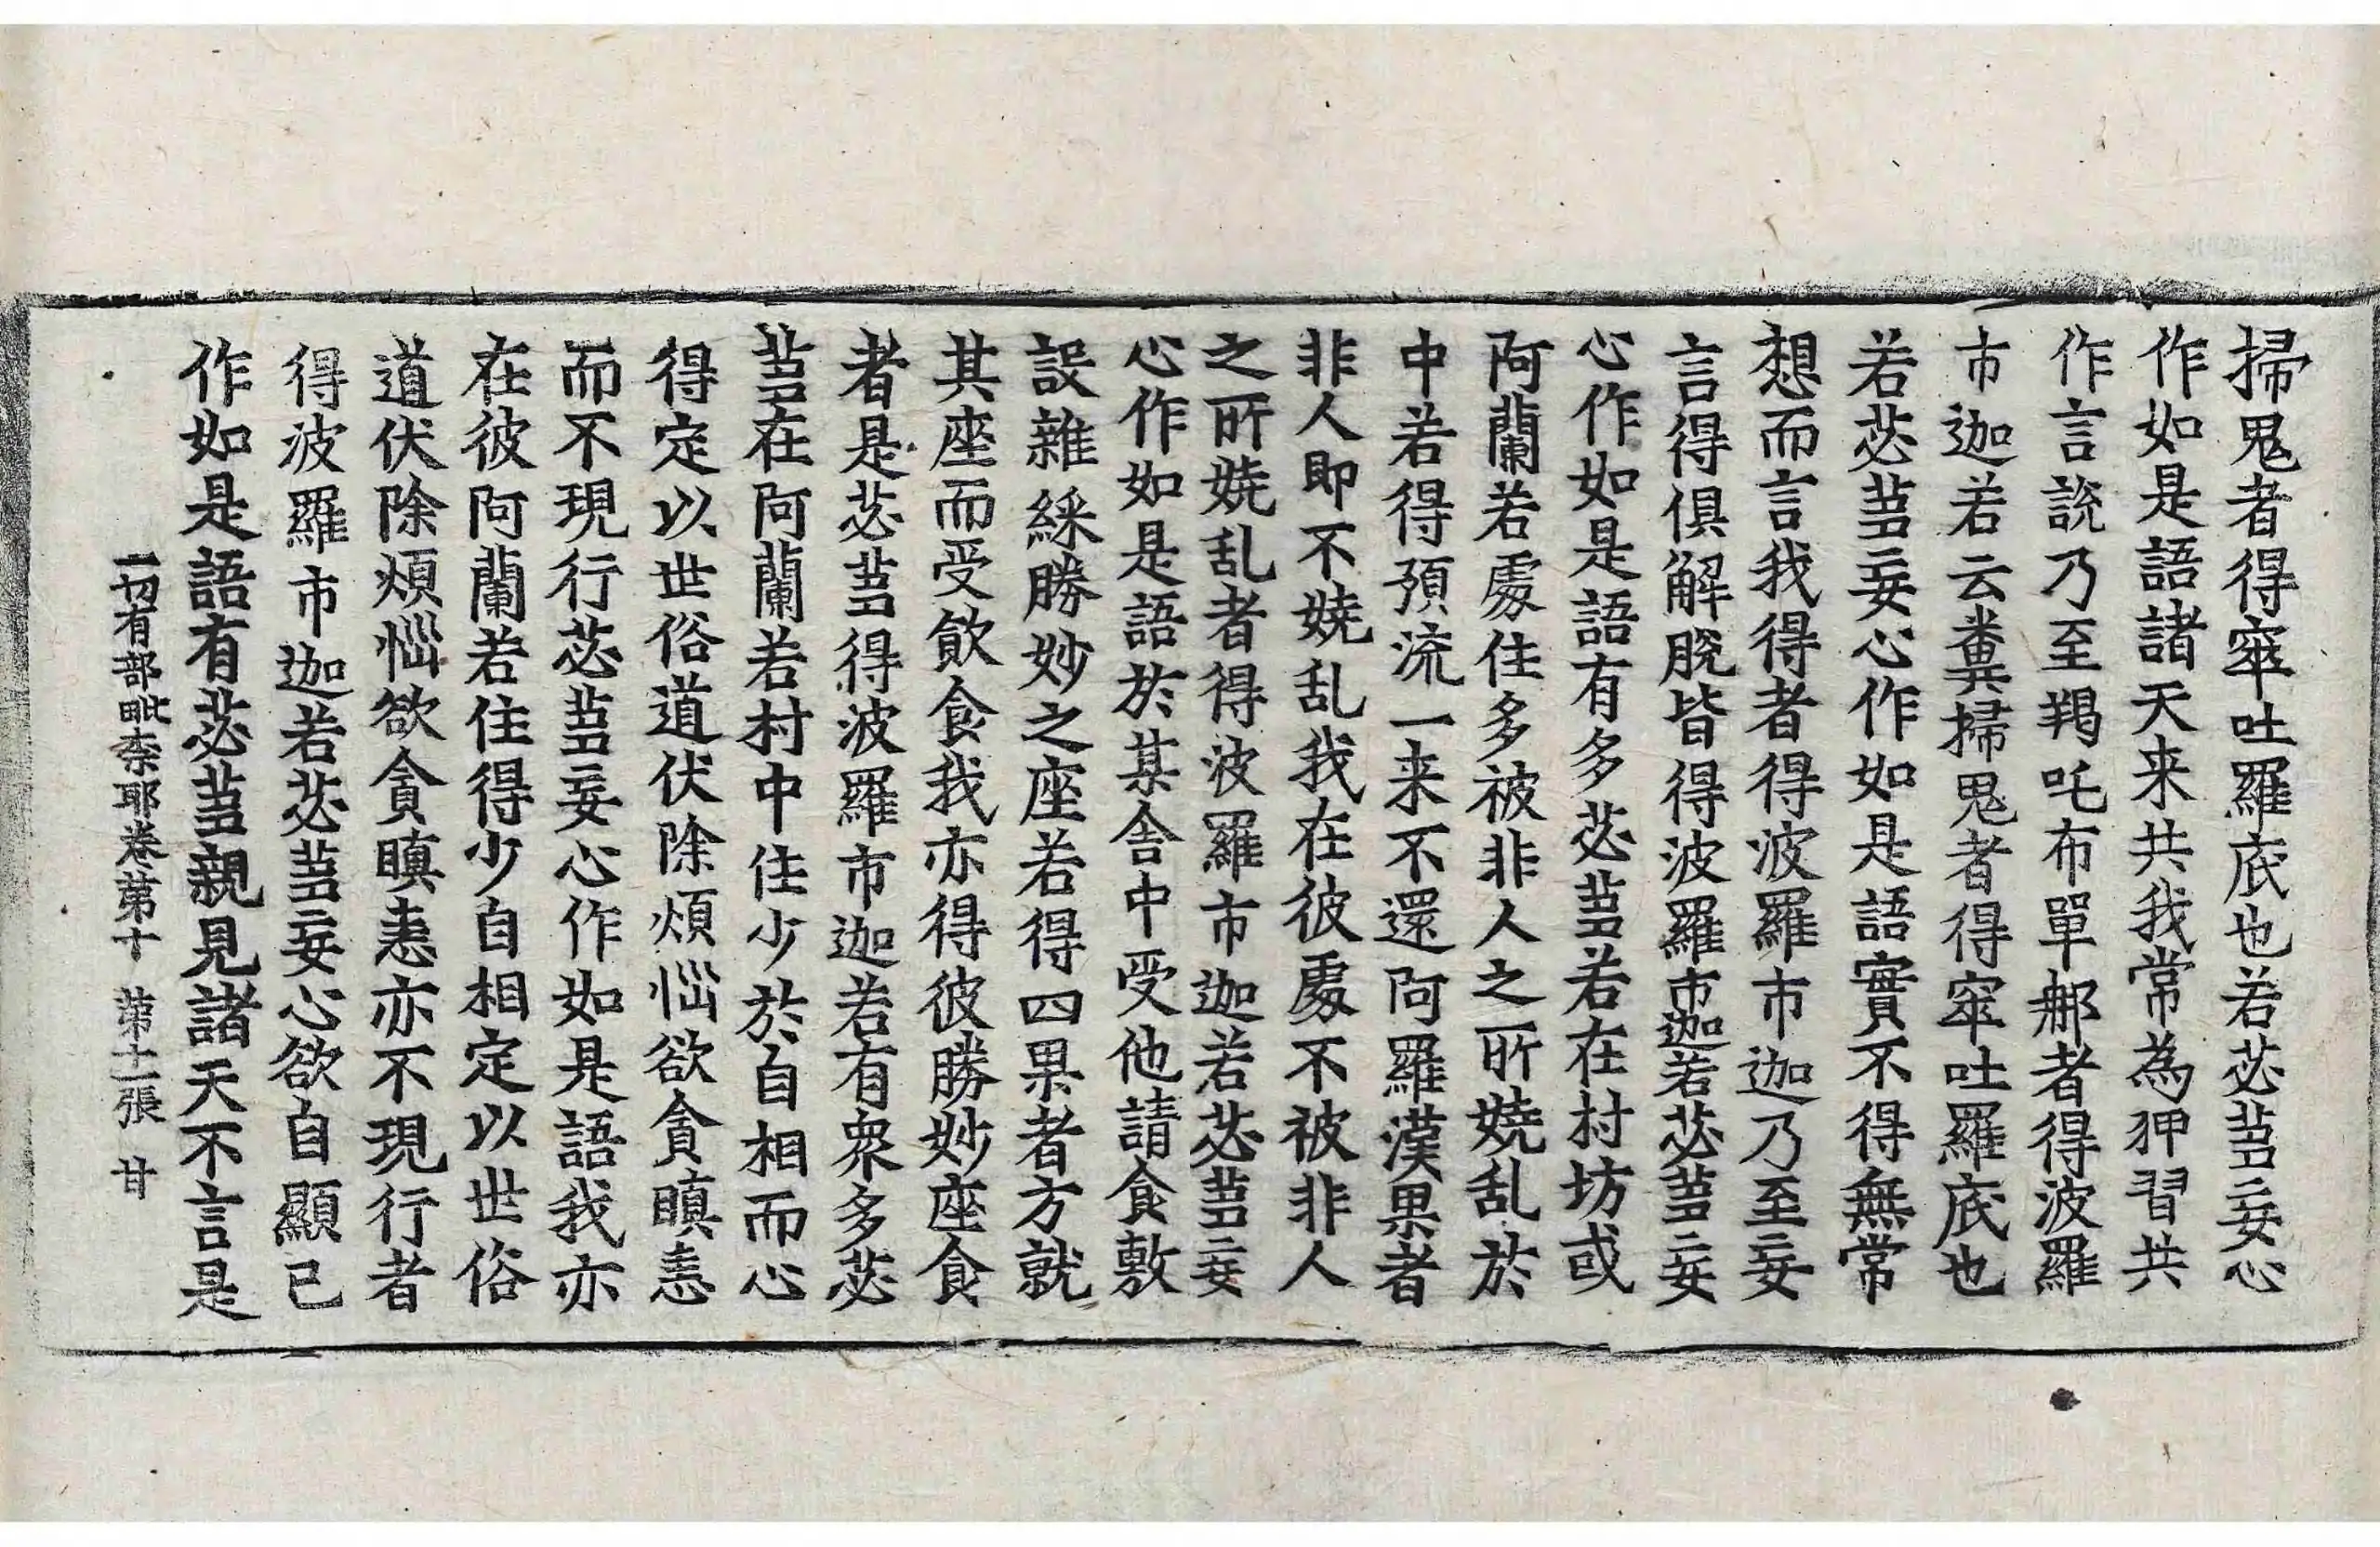 掃鬼者得窣吐羅底也若苾蒭妄心
作如是語諸天来共我常為狎習共
作言說乃至羯吒布單郍者得波羅
市迦若云糞掃鬼者得窣吐羅底也
若苾蒭妄心作如是語實不得無常
想而言我得者得波羅市迦乃至妄
言得俱解脫皆得波羅市迦若苾蒭妄
心作如是語有多苾蒭若在村坊或
阿蘭若處住多被非人之所嬈乱於
中若得預流一来不還阿羅漢果者
非人即不嬈乱我在彼處不被非人
之所嬈乱者得波羅市迦若苾蒭妄
心作如是語於某舍中受他請食敷
設雜綵勝妙之座若得四果者方就
其座而受飲食我亦得彼勝妙座食
者是苾蒭得波羅市迦若有衆多苾
蒭在阿蘭若村中住少於自相而心
得定以世俗道伏除煩惱欲貪瞋恚
而不現行苾蒭妄心作如是語我亦
在彼阿蘭若住得少自相定以世俗
道伏除煩惱欲貪瞋恚亦不現行者
得波羅市迦若苾蒭妄心欲自顯己
作如是語有苾蒭親見諸天不言是
一切有部毗柰耶卷第十 第十一張 甘